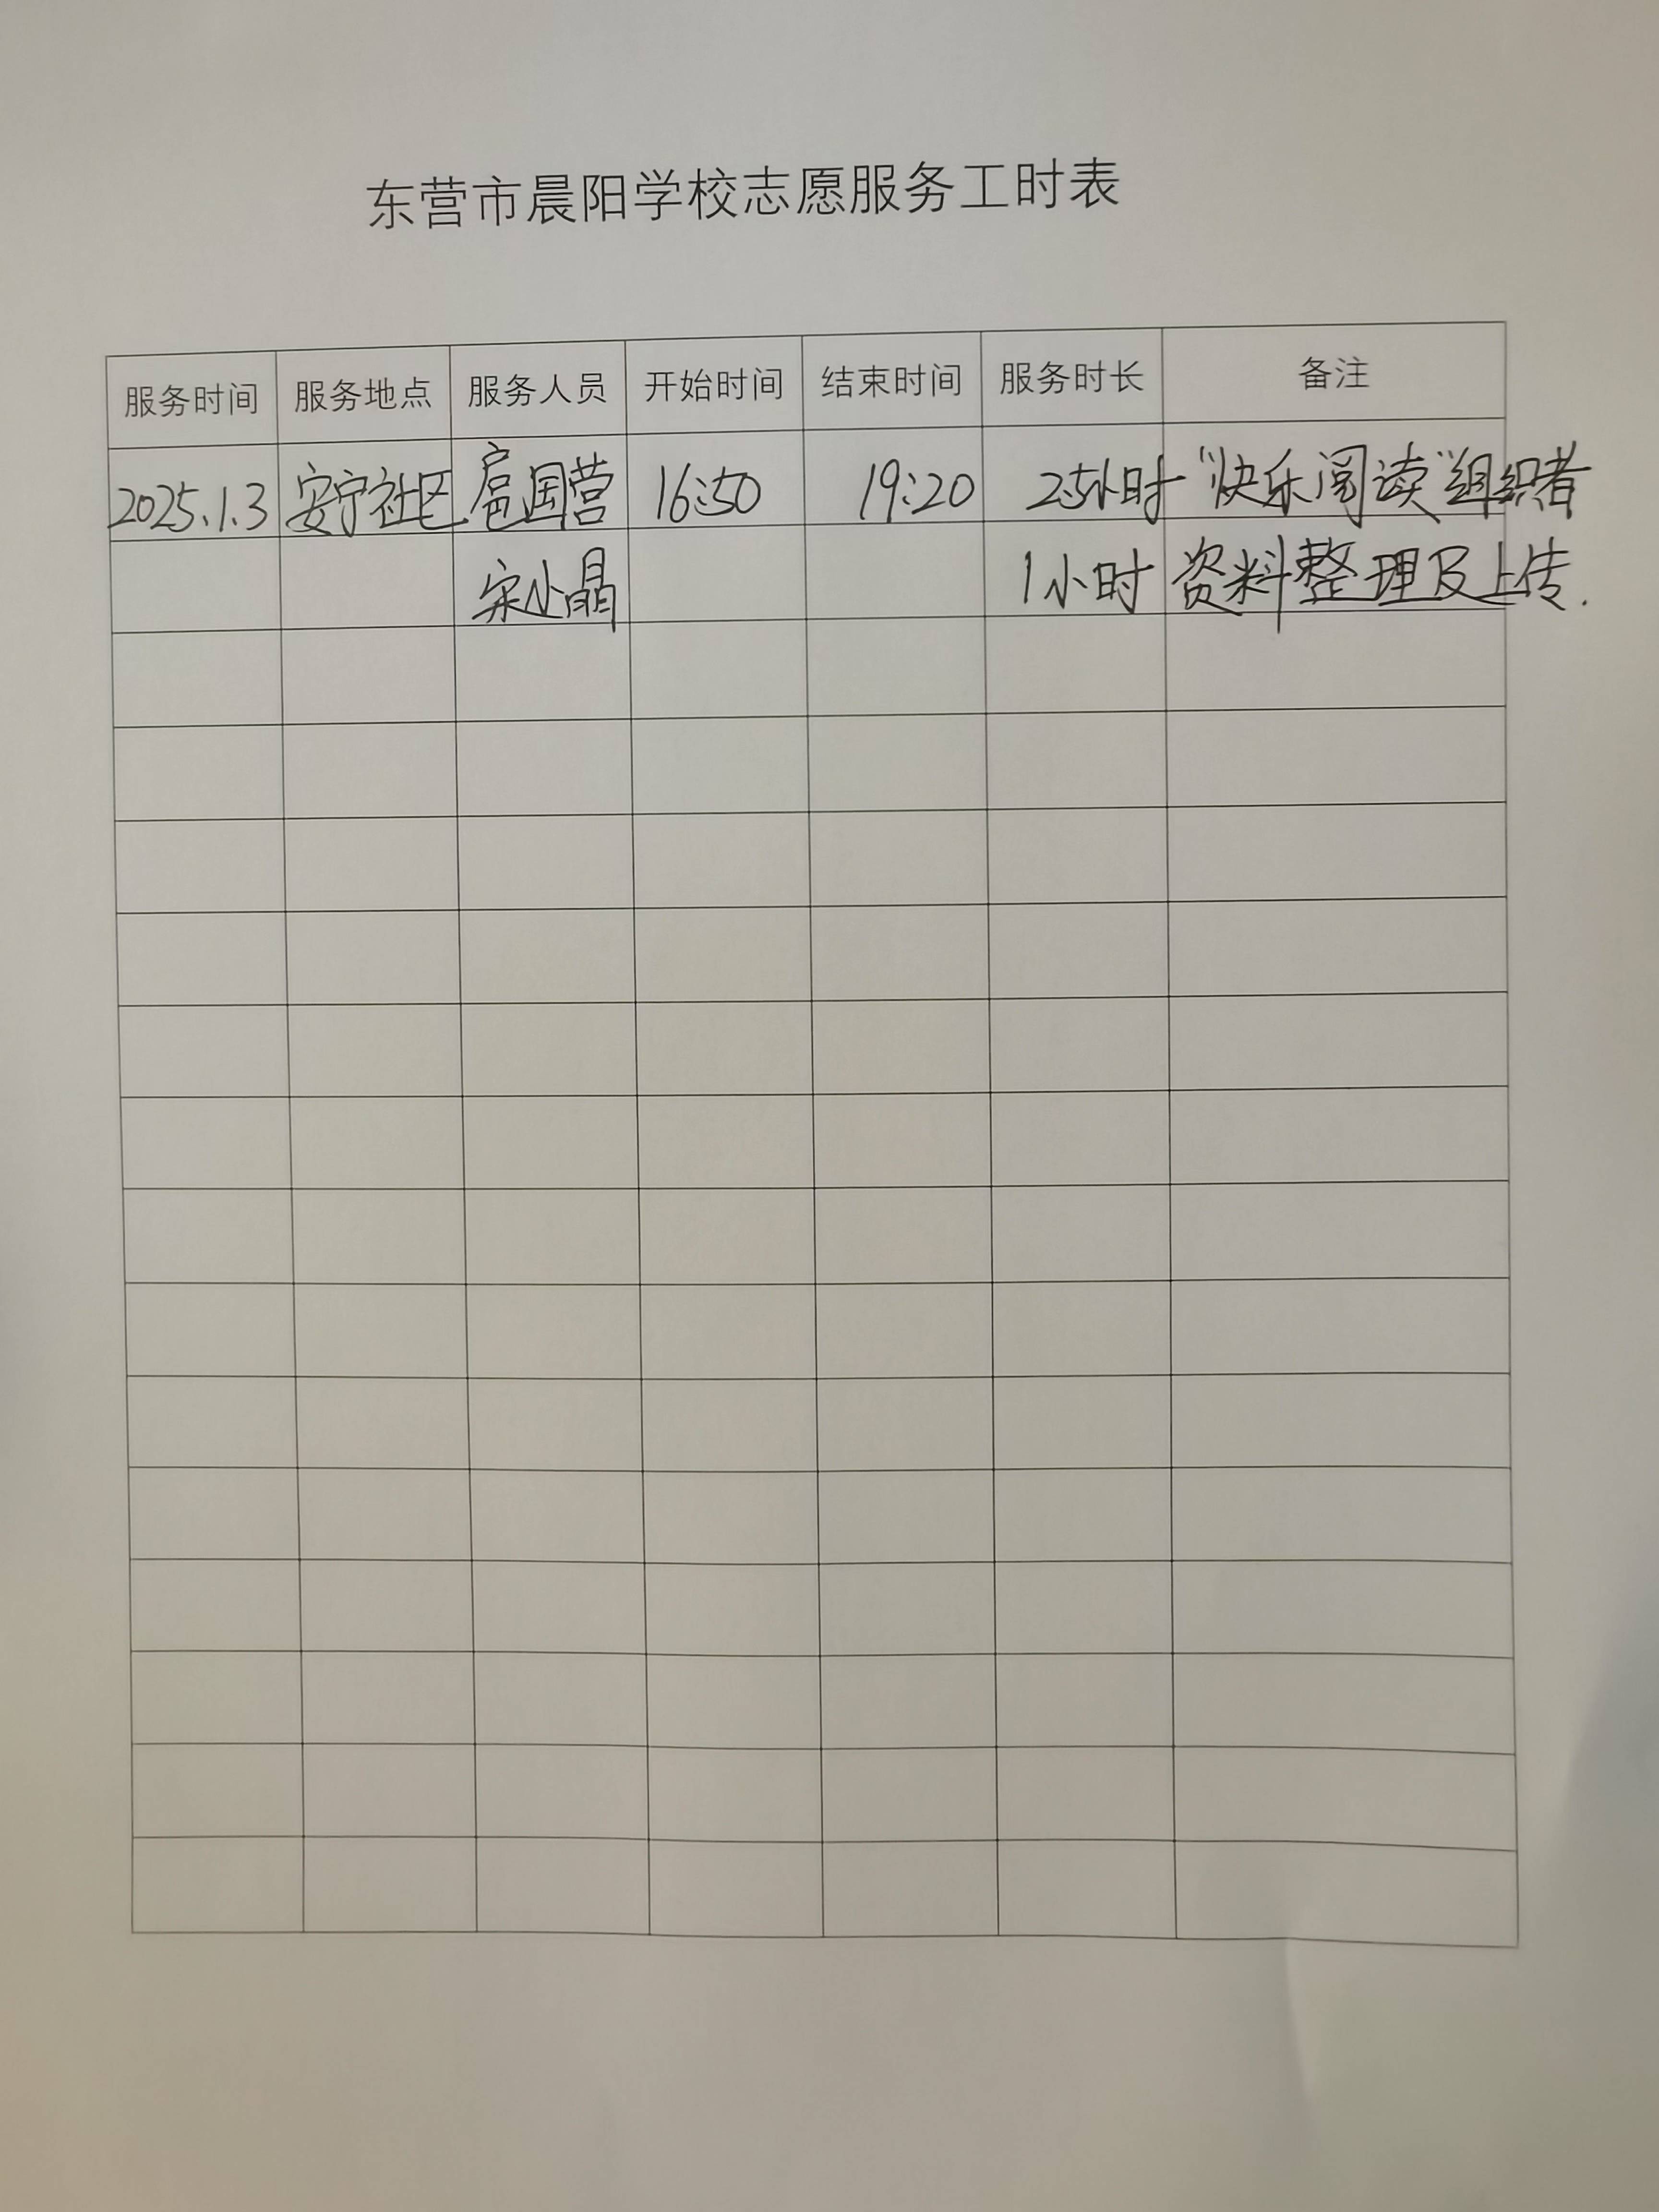 东营市晨阳学校志愿服务工时表
服务时间 服务地点 服务人员 开始时间 结束时间 服务时长 备注
2025.1.3 安宁社区 扈国营 16:50 19:20 2.5小时 "快乐阅读"组织者
宋小晶 1小时 资料整理及上传.